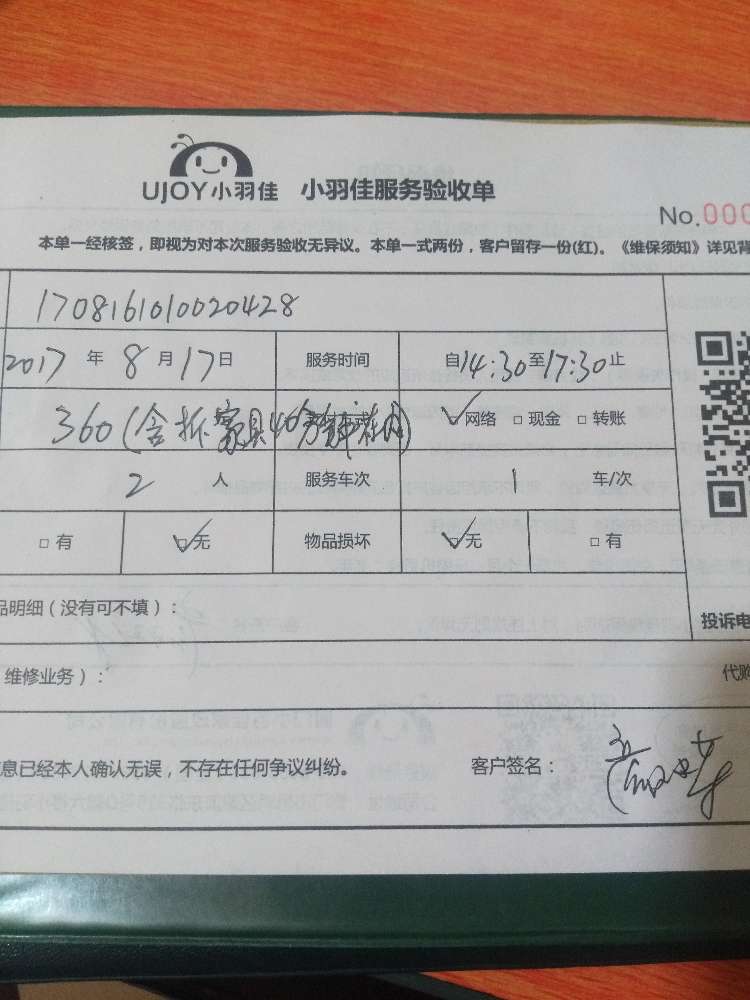 UJOY小羽佳 小羽佳服务验收单
No.000
本单一经核签，即视为对本次服务验收无异议。本单一式两份，客户留存一份(红)。《维保须知》详见背
1708161010020428
2017 年 8 月 17 日 服务时间 自14:30至17:30止
360(含拆家具40 网络 □ 现金 □ 转账
2 人 服务车次 1 车/次
□ 有 □无 物品损坏 □无 □ 有
品明细（没有可不填）：
投诉电
维修业务）：
代购
息已经本人确认无误，不存在任何争议纠纷。 客户签名：